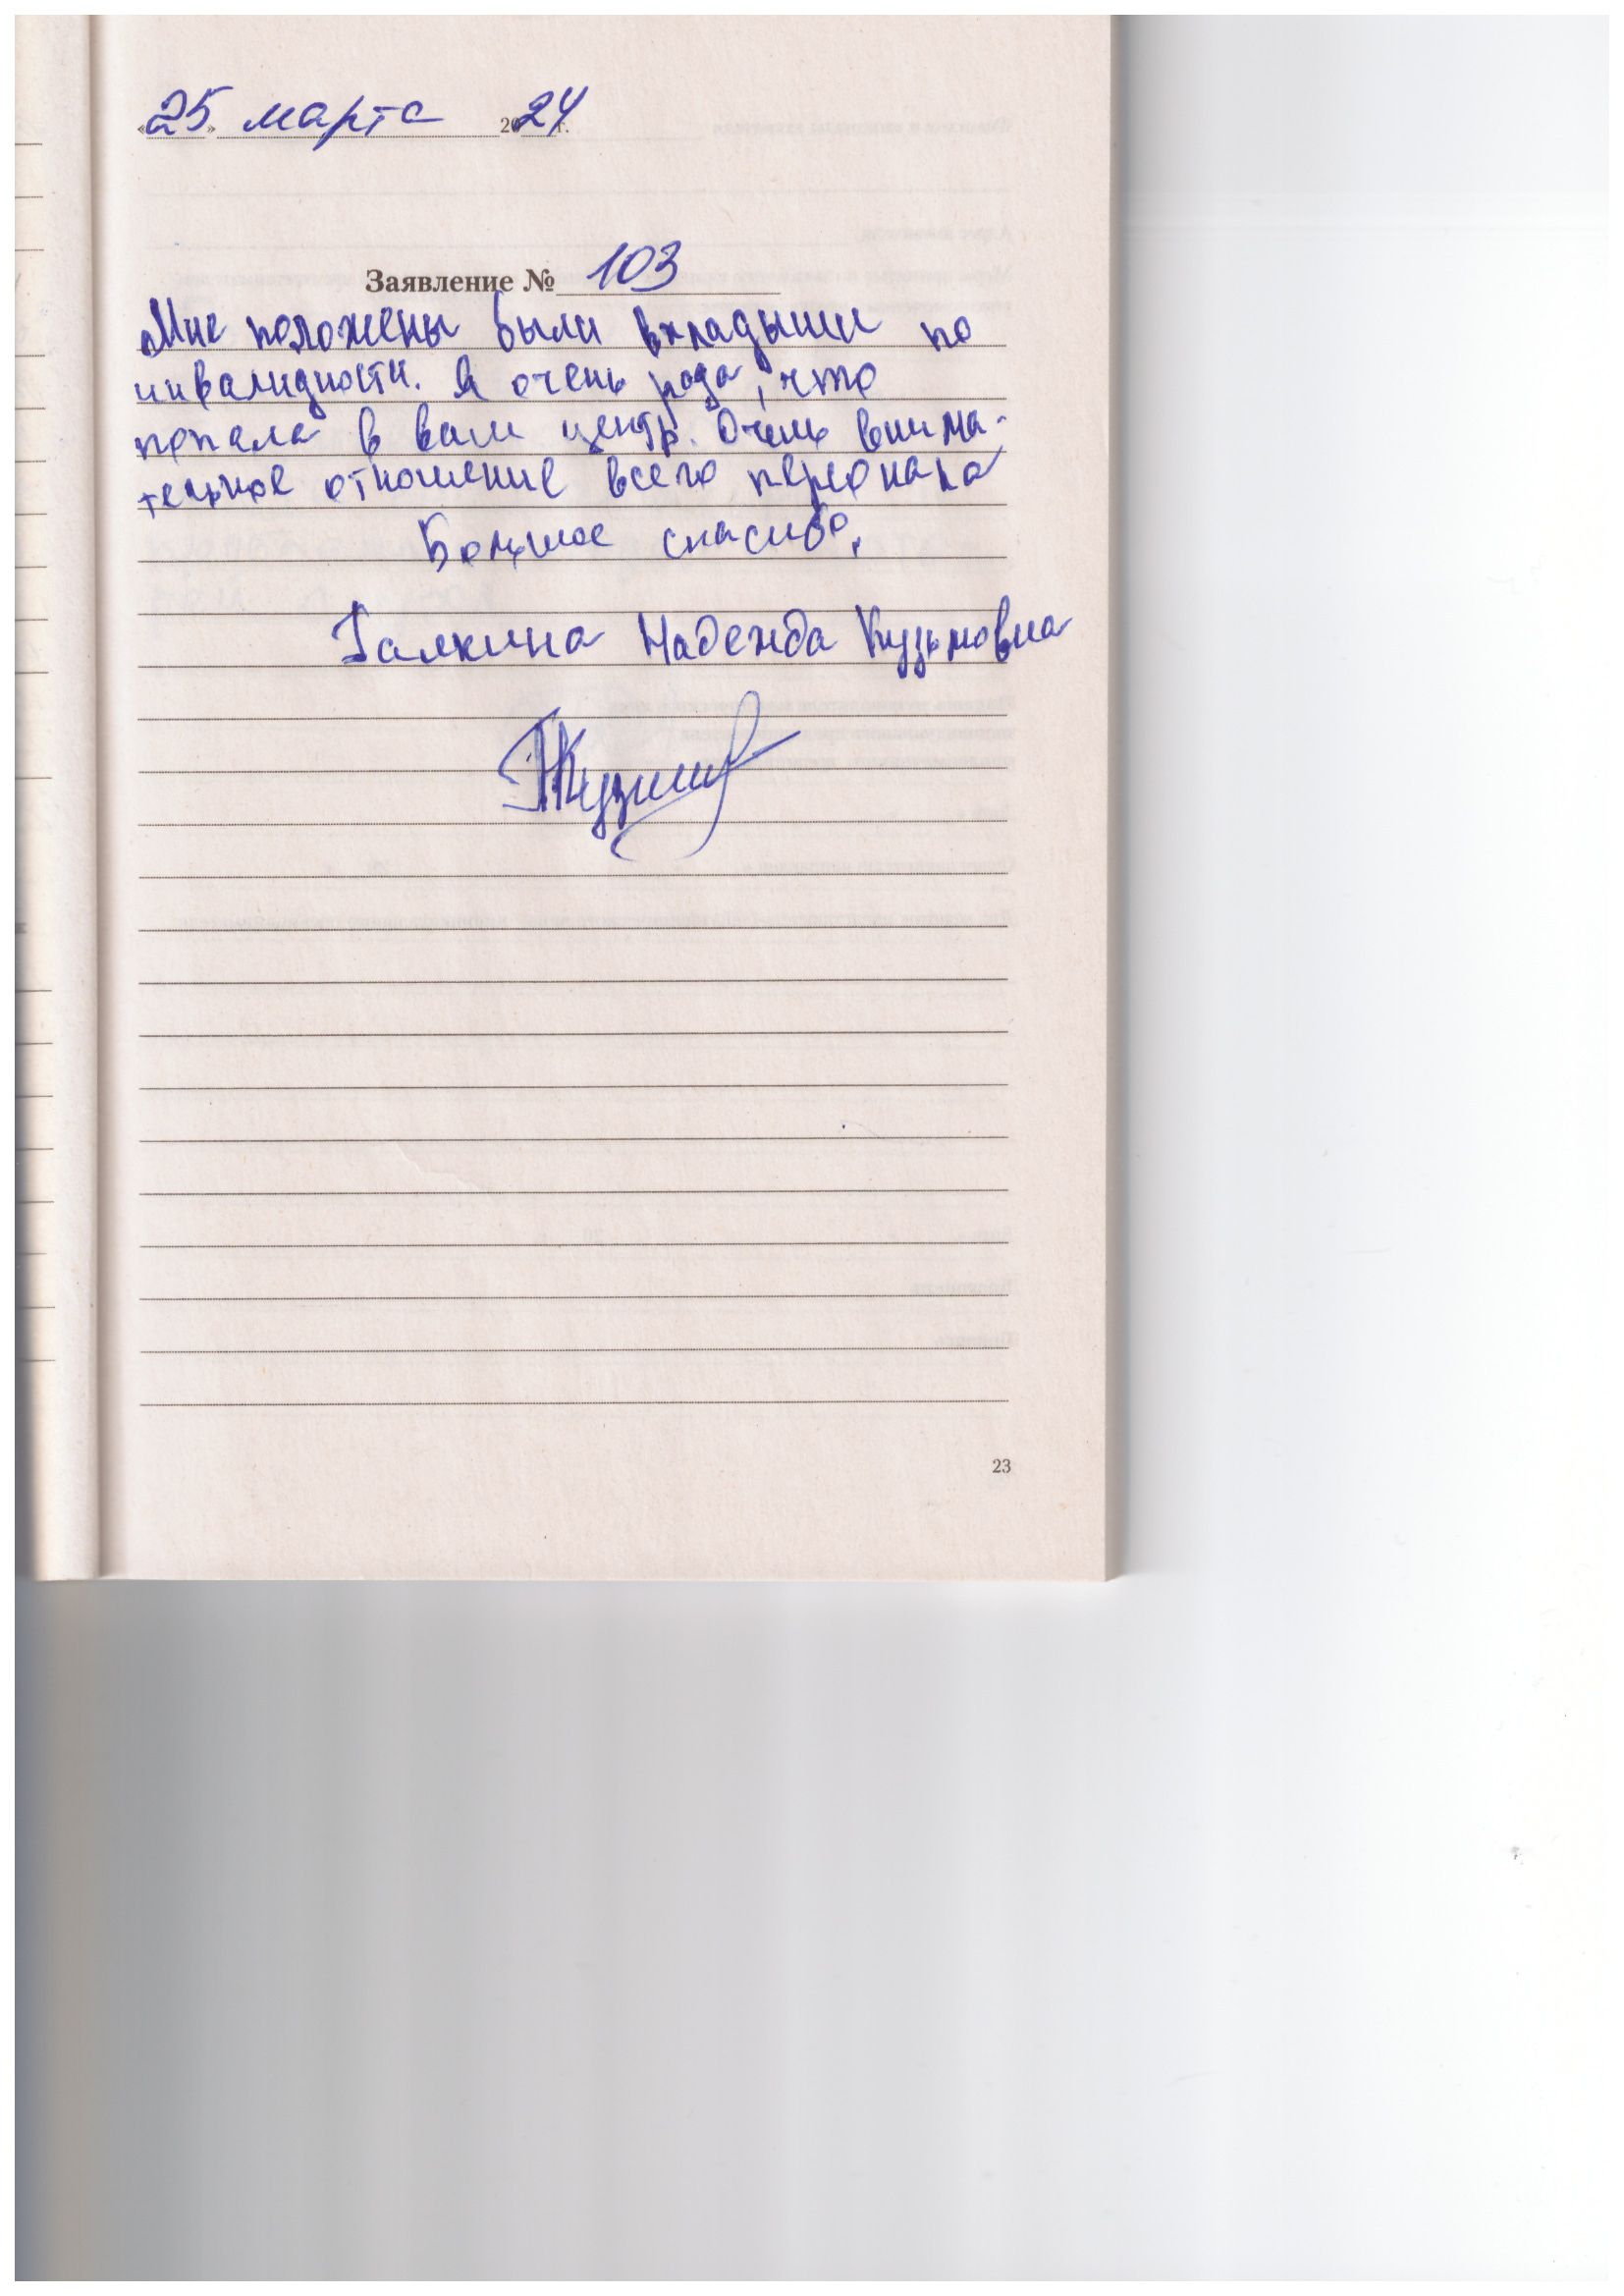 «25» марта 2024 г.
Заявление № 103
Мне положены были вкладыши по
инвалидности. Я очень рада, что
попала в ваш центр. Очень внима-
тельное отношение всего персонала
Большое спасибо.
Галкина Надежда Кузьмовна
23